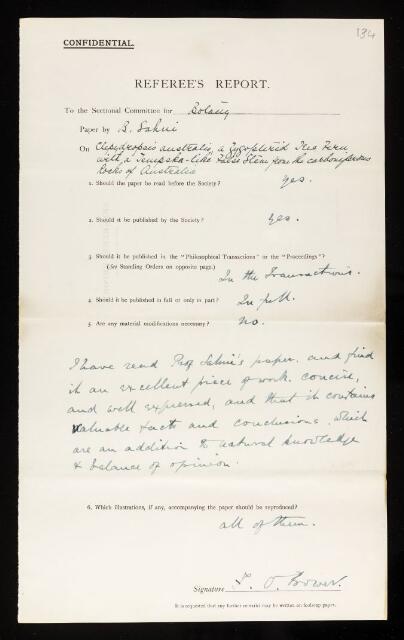 134
CONFIDENTIAL.
REFEREE'S REPORT.
To the Sectional Committee for Botany
Paper by B. Sahni
On Clepsydropsis australis, a Zygopterid Tree Fern
with a Tempskya-like False Stem from the carboniferous
Rocks of Australia
1. Should the paper be read before the Society? yes.
2. Should it be published by the Society? yes.
3. Should it be published in the "Philosophical Transactions" or the "Proceedings"?
(See Standing Orders on opposite page.)
In the Transactions.
4. Should it be published in full or only in part? In full.
5. Are any material modifications necessary? no.
I have read Prof Sahni's paper, and find
it an excellent piece of work, concise,
and well expressed, and that it contains
valuable facts and conclusions, which
are an addition to natural knowledge
& balance of opinion.
6. Which illustrations, if any, accompanying the paper should be reproduced?
all of them.
Signature F. O. Bower.
It is requested that any further remarks may be written on foolscap paper.